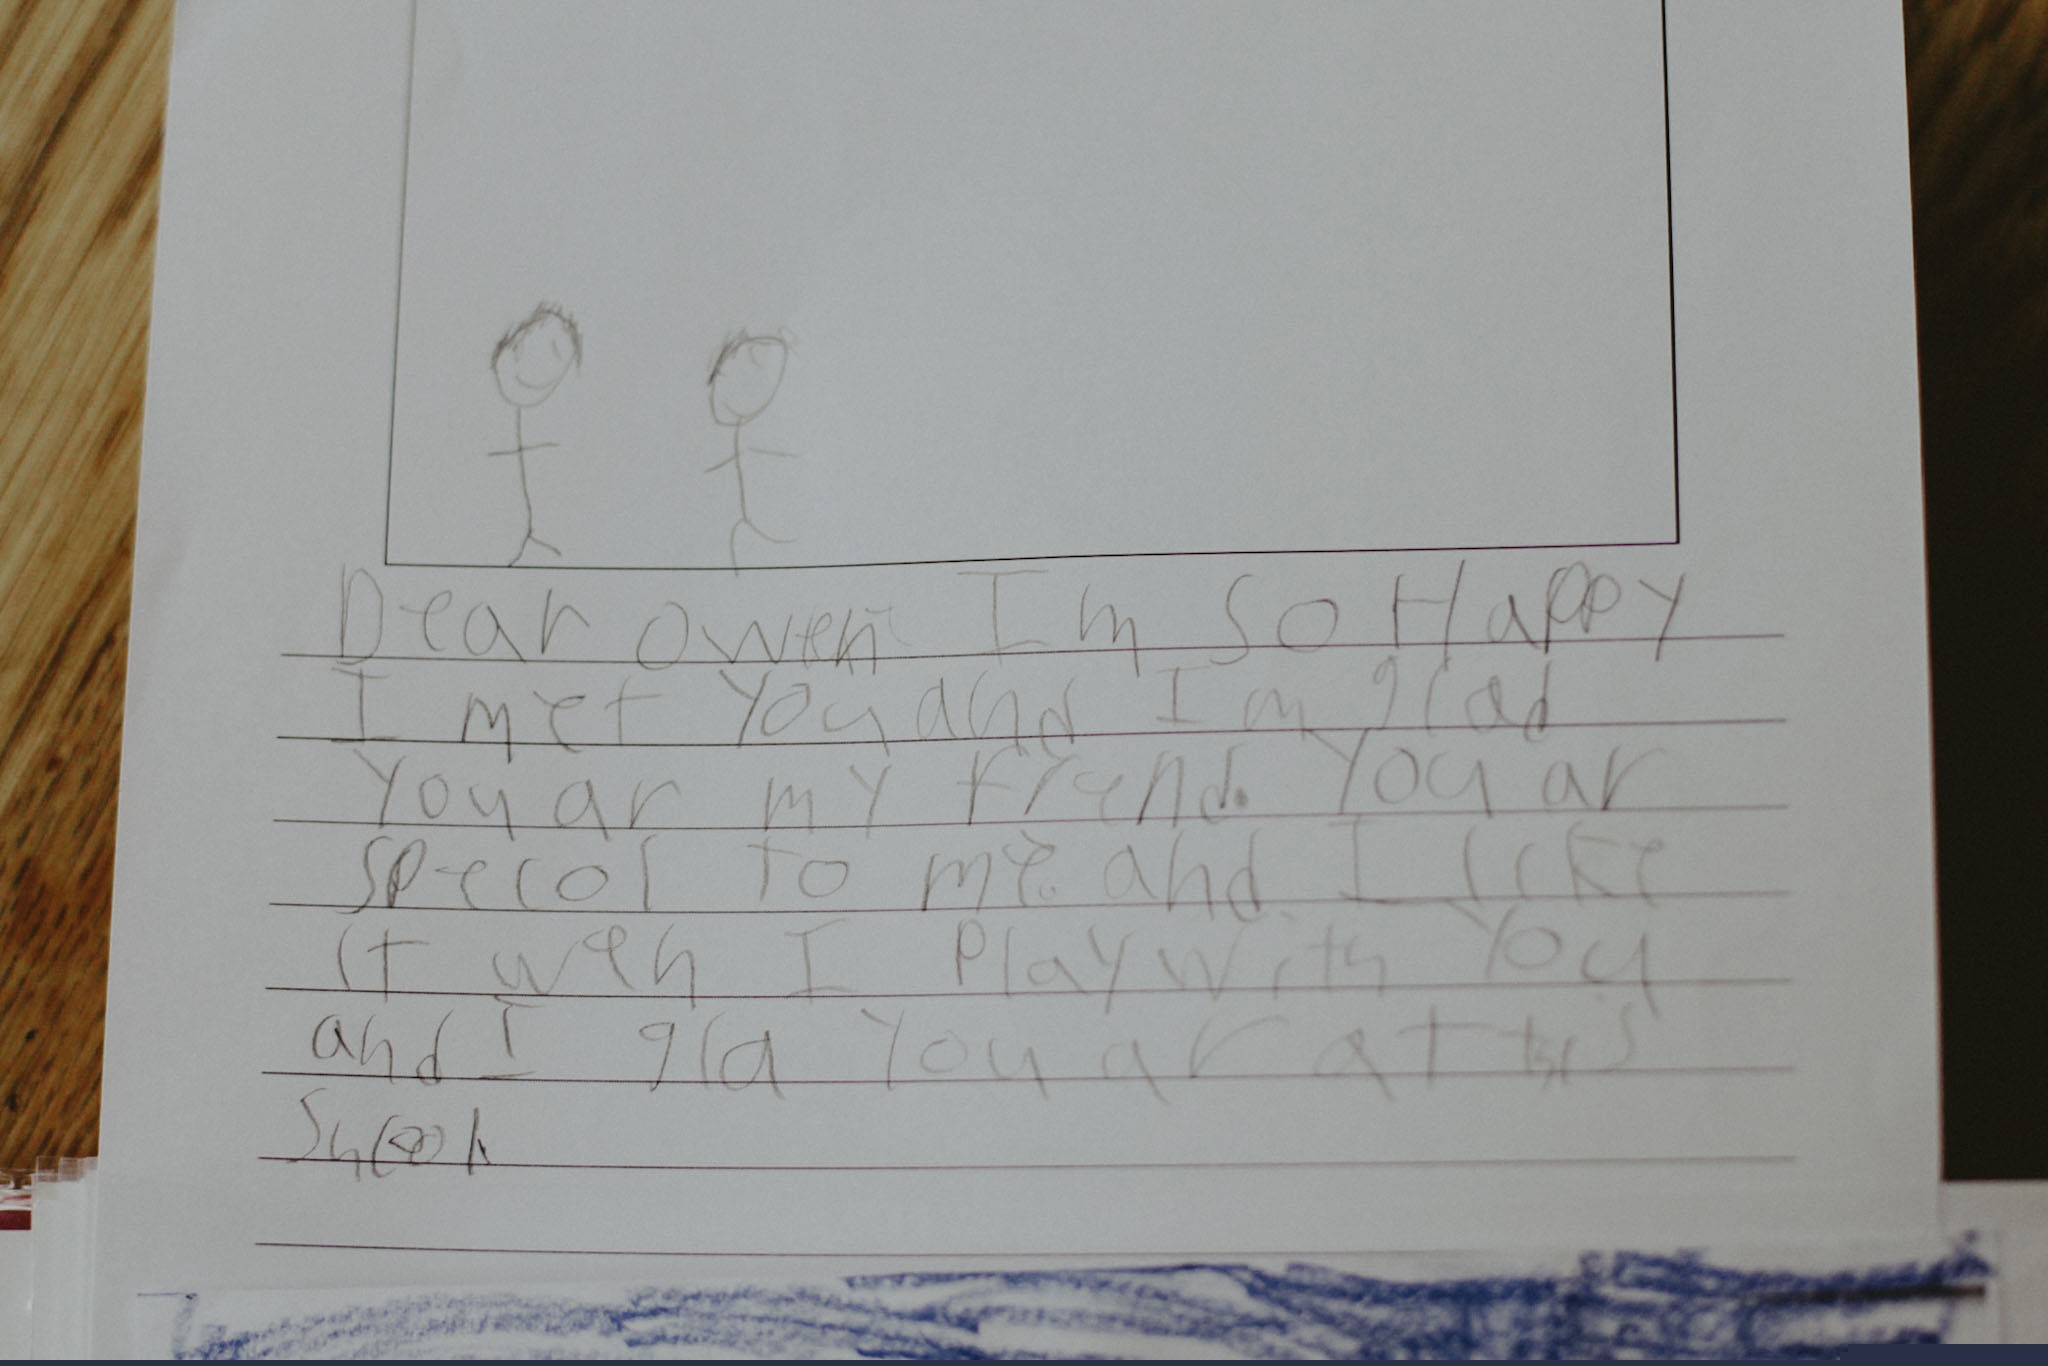 Dear owen I m so Happy
I met You and I m glad
You ar my friend. You ar
specol to me. and I like
it weh I Play with You
and I gla You ar at this
Shcool